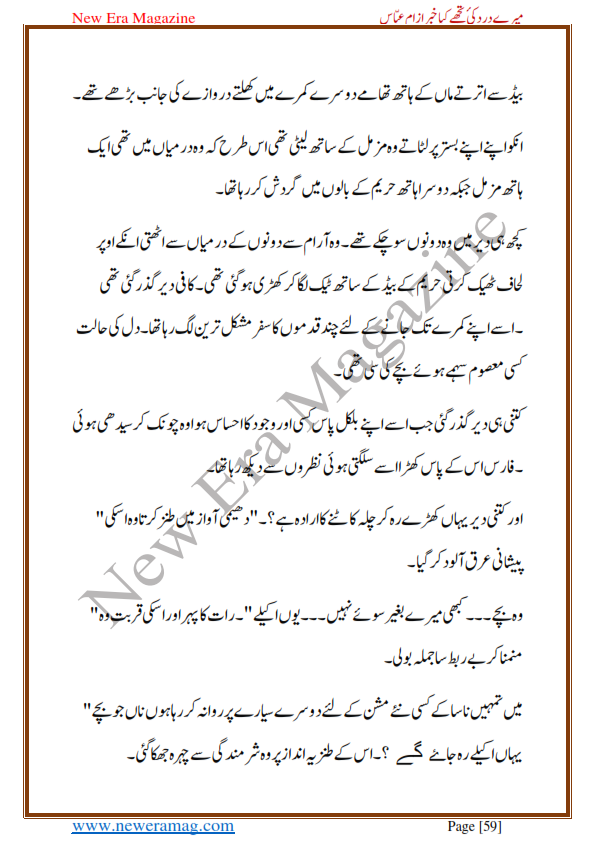 New Era Magazine میرے درد کی تجھے کیا خبر از ام عباس
بیڈ سے اترتے ماں کے ہاتھ تھامے دوسرے کمرے میں کھلتے دروازے کی جانب بڑھے تھے۔
انکو اپنے اپنے بستر پر لٹاتے وہ مزمل کے ساتھ لیٹی تھی اس طرح کہ وہ درمیاں میں تھی ایک
ہاتھ مزمل جبکہ دوسرا ہاتھ حریم کے بالوں میں گردش کر رہا تھا۔
کچھ ہی دیر میں وہ دونوں سو چکے تھے۔ وہ آرام سے دونوں کے درمیاں سے اٹھتی انکے اوپر
لحاف ٹھیک کرتی حریم کے بیڈ کے ساتھ ٹیک لگا کر کھڑی ہو گئی تھی۔ کافی دیر گذر گئی تھی
۔اسے اپنے کمرے تک جانے کے لئے چند قدموں کا سفر مشکل ترین لگ رہا تھا۔ دل کی حالت
کسی معصوم سہمے ہوئے بچے کی سی تھی۔
کتنی ہی دیر گذر گئی جب اسے اپنے بلکل پاس کسی اور وجود کا احساس ہوا وہ چونک کر سیدھی ہوئی
۔ فارس اس کے پاس کھڑا اسے سلگتی ہوئی نظروں سے دیکھ رہا تھا۔
اور کتنی دیر یہاں کھڑے رہ کر چلہ کاٹنے کا ارادہ ہے؟۔"دھیمی آواز میں طنز کرتا وہ اسکی"
پیشانی عرق آلود کر گیا۔
وہ بچے۔۔۔ کبھی میرے بغیر سوئے نہیں۔۔۔ یوں اکیلے"۔رات کا پہر اور اسکی قربت وہ"
منمنا کر بے ربط سا جملہ بولی۔
میں تمہیں ناسا کے کسی نئے مشن کے لئے دوسرے سیارے پر روانہ کر رہا ہوں ناں جو بچے"
یہاں اکیلے رہ جائے گے ؟۔اس کے طنزیہ انداز پر وہ شرمندگی سے چہرہ جھکا گئی۔
New Era Magazine
www.neweramag.com Page [59]